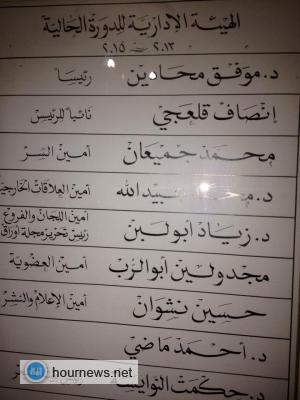 الهيئة الإدارية للدورة الحالية
٢٠١٣ - ٢٠١٥
د. موفق محادين رئيسا
إنصاف قلعجي نائبا للرئيس
محمد جميعان أمين السر
د. عبيدالله أمين العلاقات الخارجية
د. زياد أبولبن أمين اللجان والفروع
رئيس تحرير مجلة أوراق
مجدولين أبوالرب أمين العضوية
حسين نشوان أمين الإعلام والنشر
د. أحمد ماضي
د. حكمت النوايسة
hournews.net